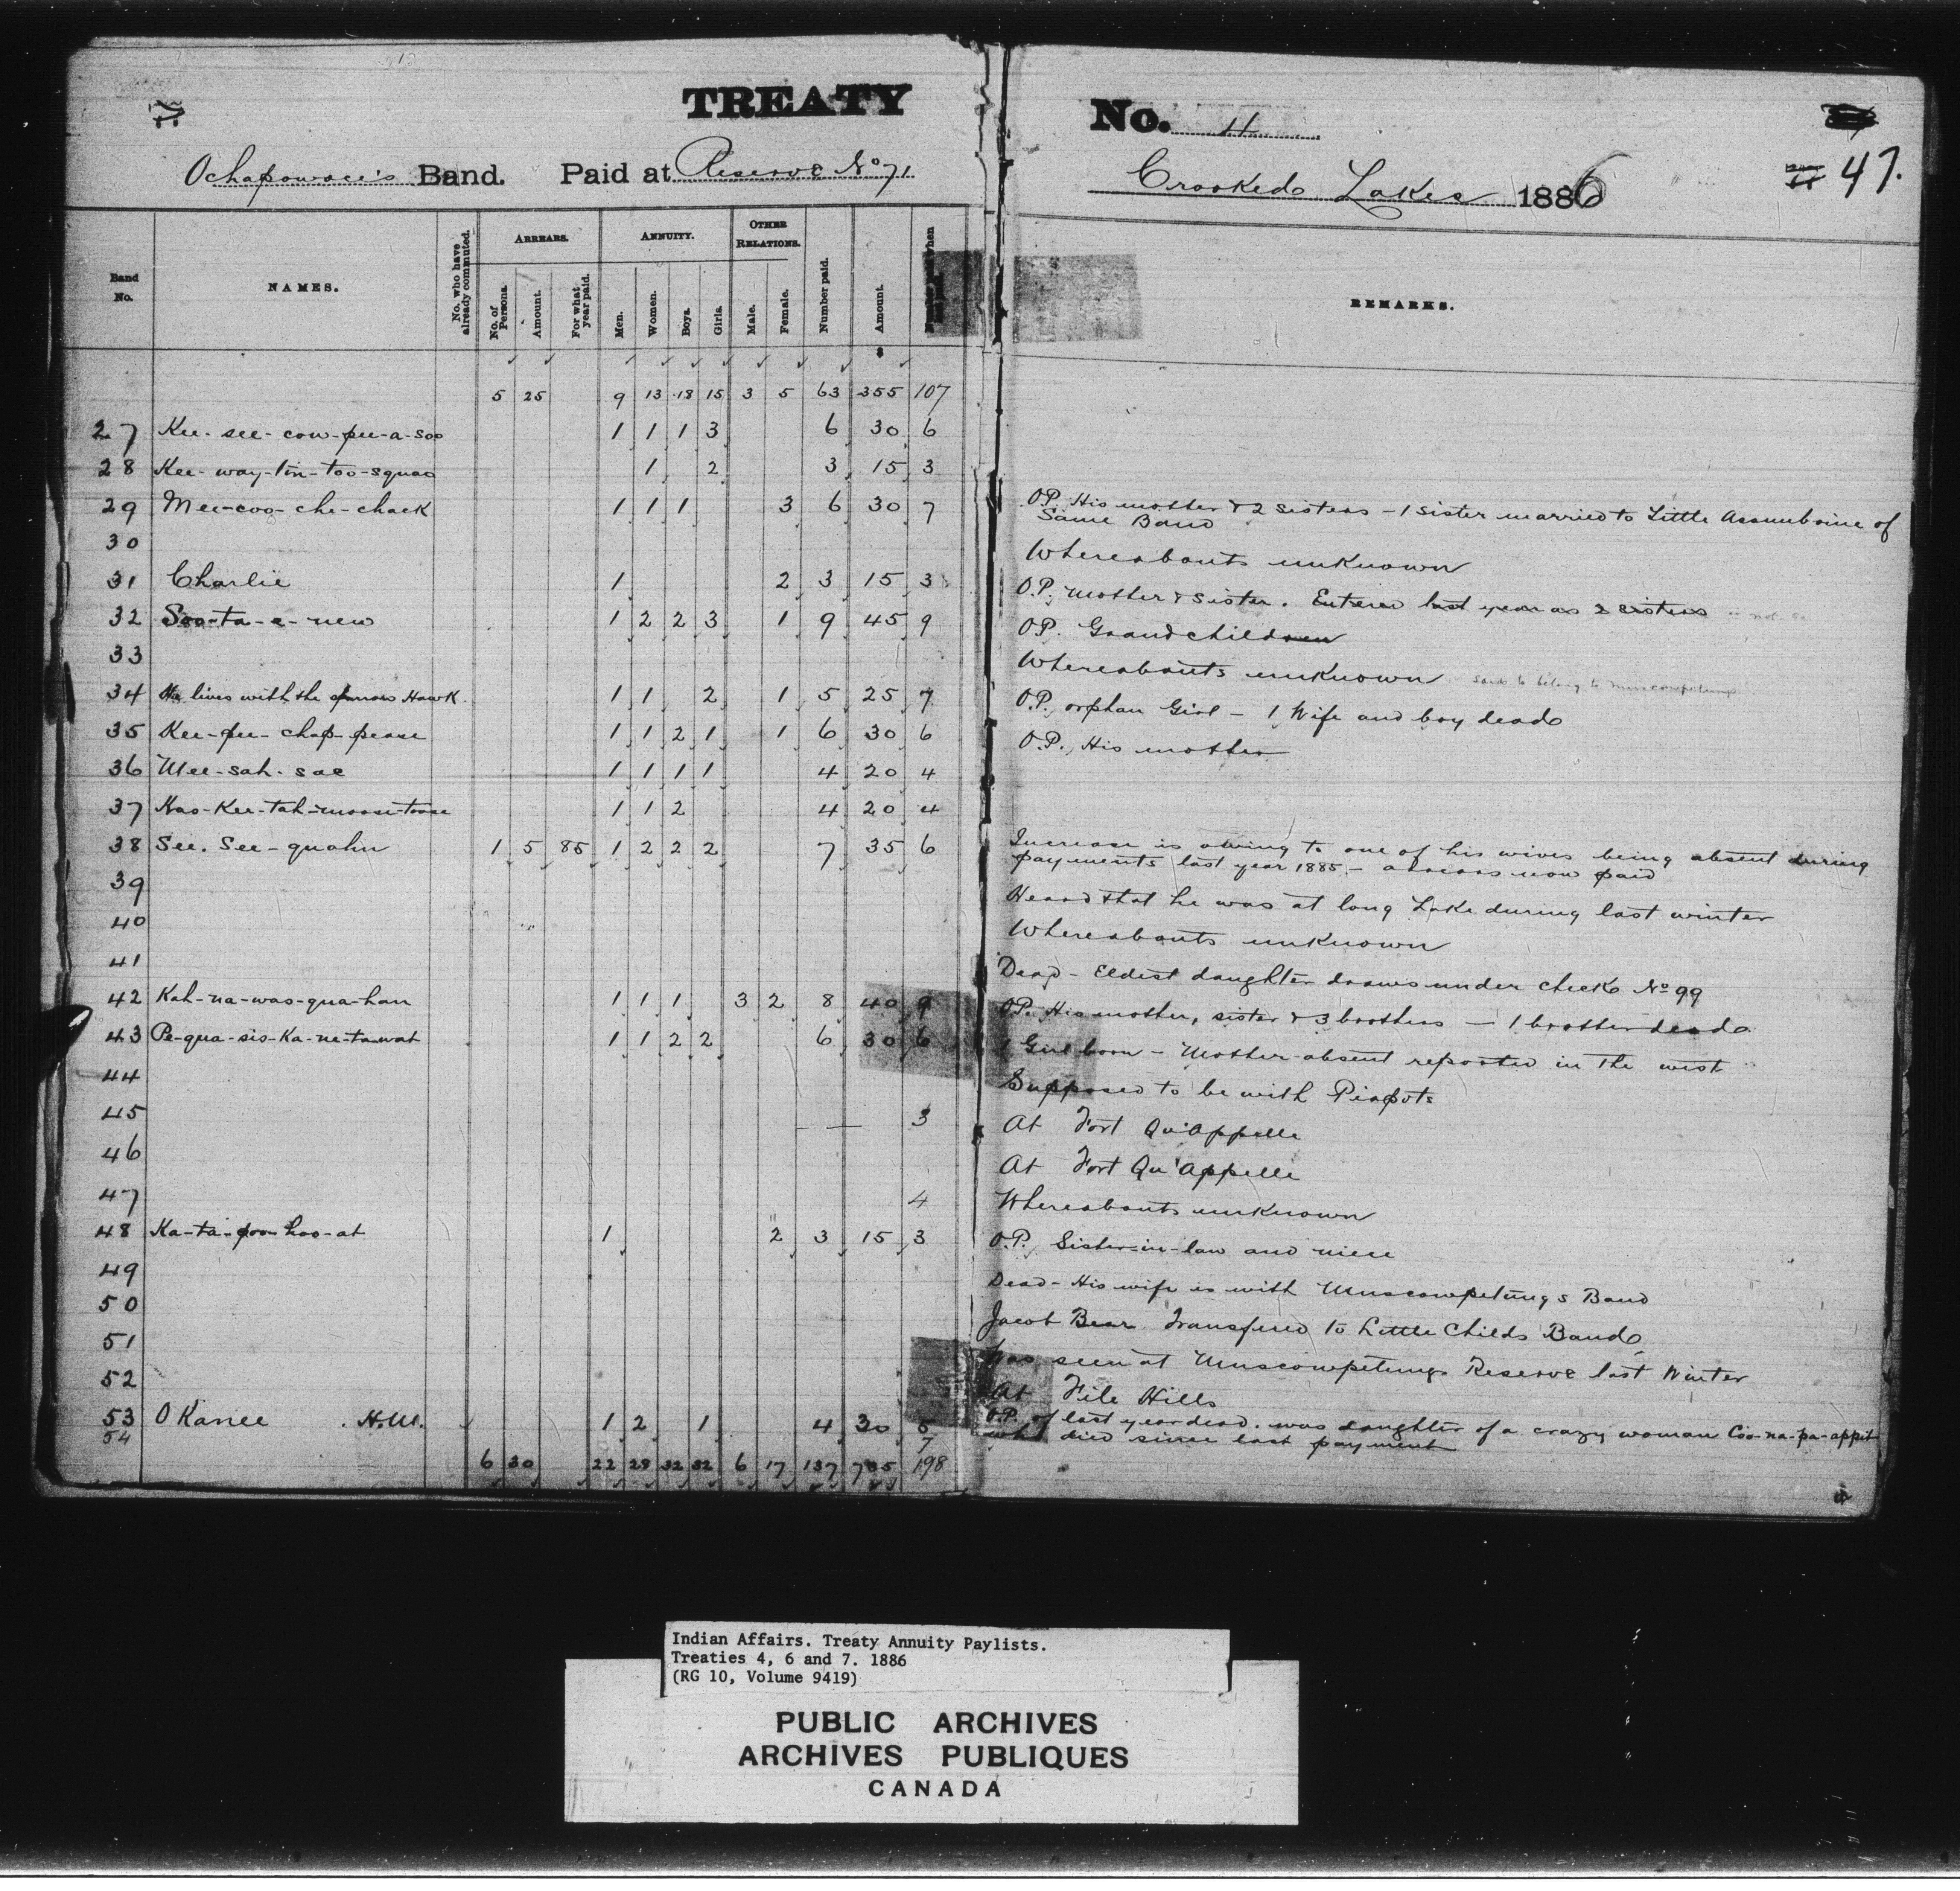 TREATY No. 4
47.
Ochapowace's Band. Paid at Reserve No 71. Crooked Lakes 1886
Band No. NAMES. No. who have already commuted. ARREARS. ANNUITY. OTHER RELATIONS. Number paid. Amount. REMARKS.
No. of Persons. Amount. For what year paid. Men. Women. Boys. Girls. Male. Female.
$
5 25 9 13 18 15 3 5 63 355 107
27 Kee-see-cow-pee-a-soo 1 1 1 3 6 30 6
28 Kee-way-tin-too-squao 1 2 3 15 3
29 Mee-coo-che-chack 1 1 1 3 6 30 7 O.P. His mother & 2 sisters - 1 sister married to Little Assiniboine of
Same Band
30 Whereabouts unknown
31 Charlie 1 2 3 15 3 O.P. Mother & sister. Entered last year as 2 sisters
32 Soo-ta-e-new 1 2 2 3 1 9 45 9 O.P. Grandchild
33 Whereabouts unknown said to belong to Muscowpetungs
34 He lives with the sparrow Hawk 1 1 2 1 5 25 7 O.P. orphan Girl - 1 Wife and boy dead
35 Kee-pee-chap-pease 1 1 2 1 1 6 30 6 O.P. His mother
36 Mee-sah-sae 1 1 1 1 4 20 4
37 Kas-kee-tah-moose-toose 1 1 2 4 20 4
38 See-See-quahn 1 5 85 1 2 2 2 7 35 6 Increase is owing to one of his wives being absent during
payments last year 1885 - arrears now paid
39 Heard that he was at long Lake during last winter
40 Whereabouts unknown
41 Dead - Eldest daughter draws under check No 99
42 Kah-na-was-qua-han 1 1 1 3 2 8 40 9 O.P. His mother, sister & 3 brothers - 1 brother dead
43 Pe-qua-sis-ka-ne-ta-wat 1 1 2 2 6 30 6 1 Girl born - Mother absent reported in the west
44 Supposed to be with Piapots
45 3 At Fort Qu'Appelle
46 At Fort Qu'Appelle
47 4 Whereabouts unknown
48 Ka-ta-poo-hoo-at 1 2 3 15 3 O.P. Sister-in-law and niece
49 Dead - His wife is with Muscowpetungs Band
50 Jacob Bear Transfered to Little Childs Band
51 Was seen at Muscowpetungs Reserve last Winter
52 At File Hills
53 O Kanee H.M. 1 2 1 4 30 5 O.P. of last year dead. was daughter of a crazy woman Coo-na-pa-appit
54 7 who died since last payment
6 30 22 29 32 32 6 17 137 735 198
Indian Affairs. Treaty Annuity Paylists.
Treaties 4, 6 and 7. 1886
(RG 10, Volume 9419)
PUBLIC ARCHIVES
ARCHIVES PUBLIQUES
CANADA